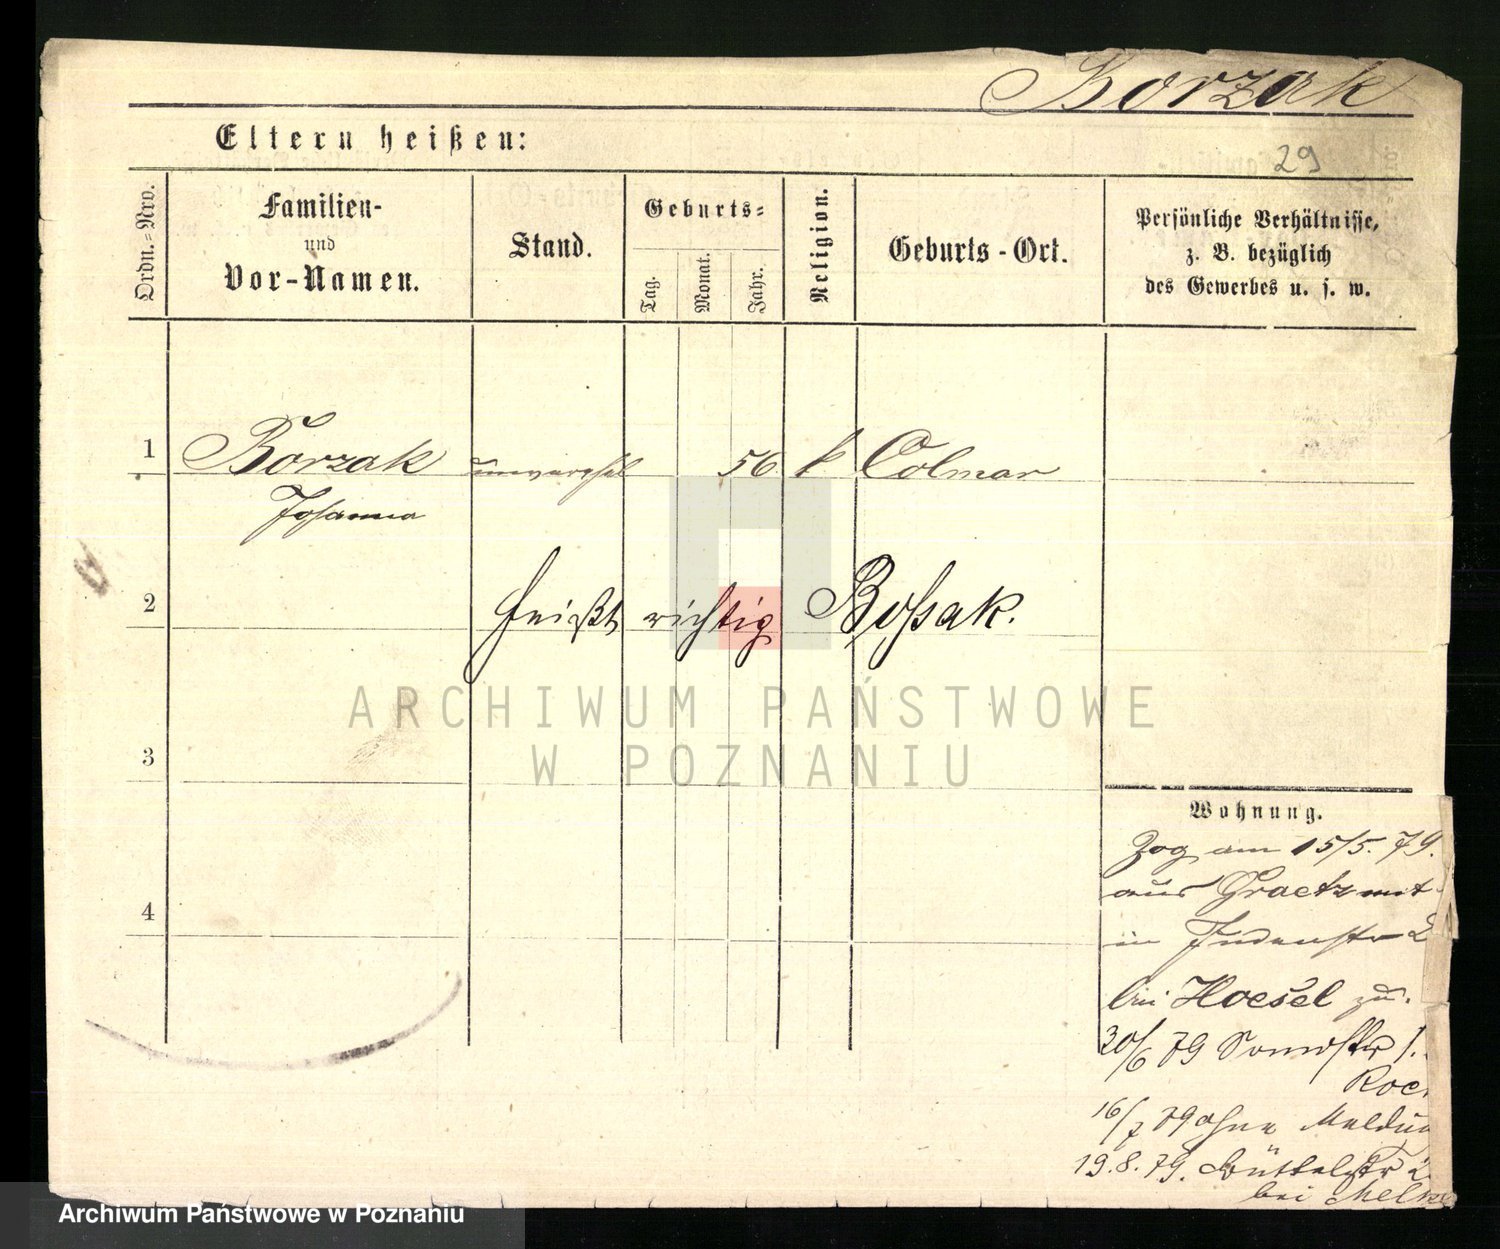 Borzak
Eltern heißen:
29
Ordn.=Nro.
Familien-
und
Vor-Namen.
Stand.
Geburts=
Tag.
Monat.
Jahr.
Religion.
Geburts-Ort.
Persönliche Verhältnisse,
z. B. bezüglich
des Gewerbes u. s. w.
1 Borzak unverehel 56 k Colmar
Johanna
2 heißt richtig Boßak.
ARCHIWUM PAŃSTWOWE
W POZNANIU
3
Wohnung.
Zog am 15/5. 79.
aus Graetz mit
4
in Judenstr 2
bei Hoesel zu.
30/6 79
16/7 79 ohne Meldu
19.8.79. Büttelstr 2
bei Melk
Archiwum Państwowe w Poznaniu